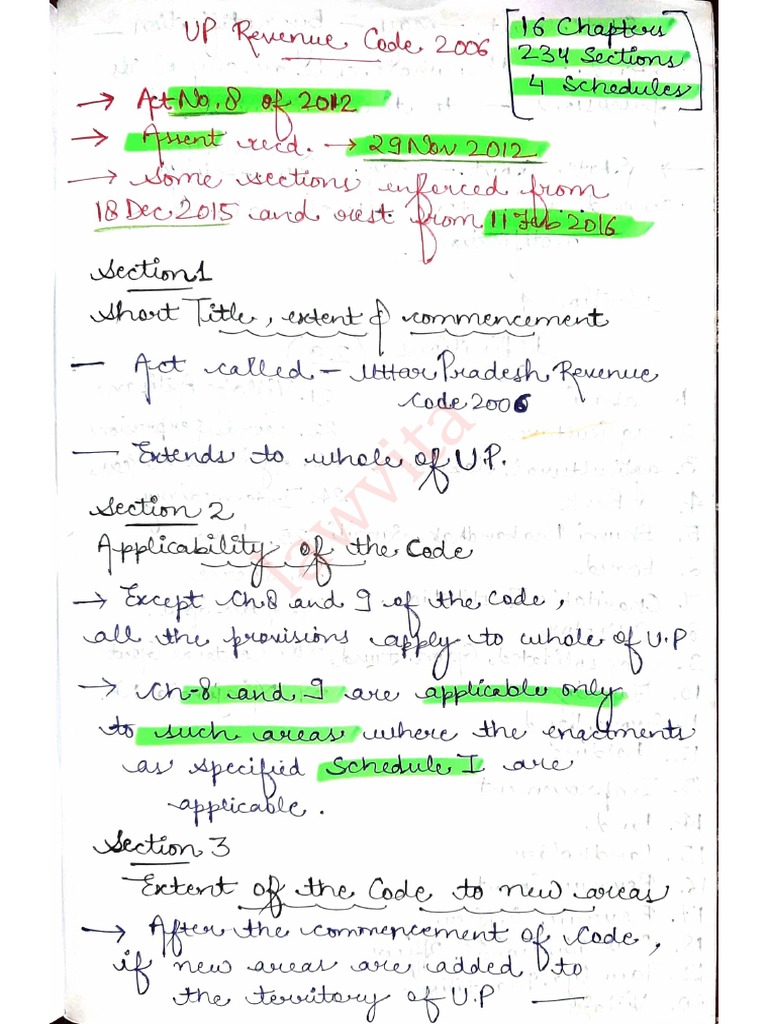 UP Revenue Code 2006
16 Chapters
234 Sections
4 Schedules
→ Act No. 8 of 2012
→ Assent recd. → 29 Nov 2012
→ Some sections enforced from
18 Dec 2015 and rest from 11 Feb 2016
Section 1
Short Title, extent & commencement
— Act called – Uttar Pradesh Revenue
Code 2006
— Extends to whole of U.P.
Section 2
Applicability of the Code
→ Except Ch 8 and 9 of the Code,
all the provisions apply to whole of U.P
→ Ch-8 and 9 are applicable only
to such areas where the enactments
as specified Schedule I are
applicable.
Section 3
Extent of the Code to new areas
→ After the commencement of Code,
if new areas are added to
the territory of U.P —
lawvita